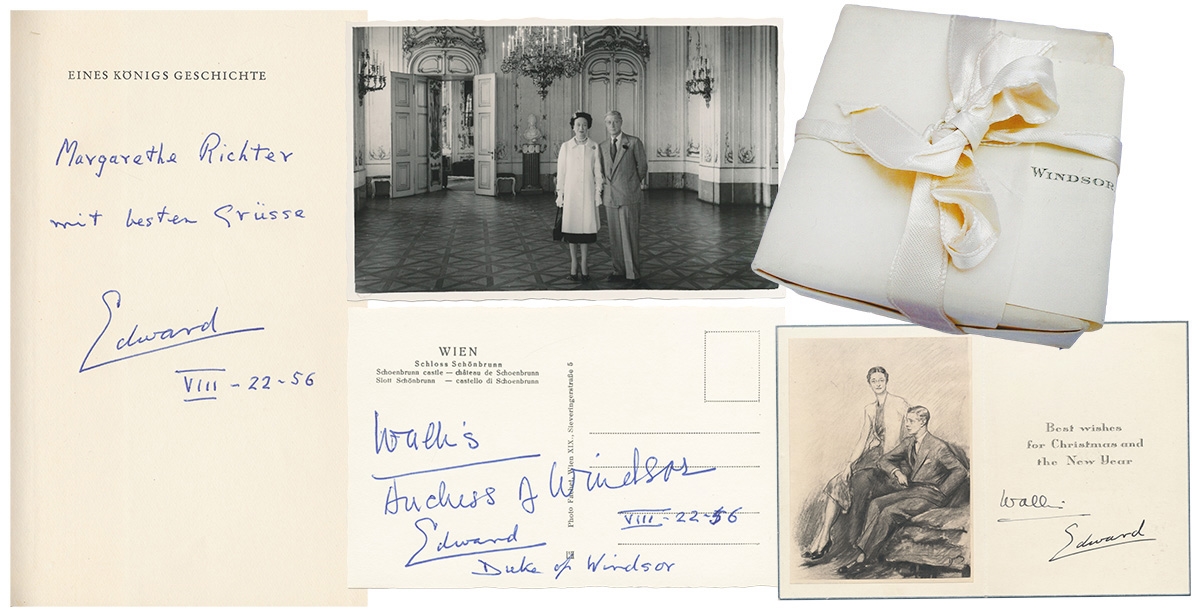 EINES KÖNIGS GESCHICHTE
Margarethe Richter
mit besten Grüsse
Edward
VIII - 22 - 56
WIEN
Schloss Schönbrunn
Schoenbrunn castle — château de Schoenbrunn
Slott Schönbrunn — castello di Schoenbrunn
Photo Wien XIX., Sieveringerstraße 5
Wallis
Duchess of Windsor
Edward
Duke of Windsor
VIII - 22 - 56
WINDSOR
Best wishes
for Christmas and
the New Year
Wallis
Edward